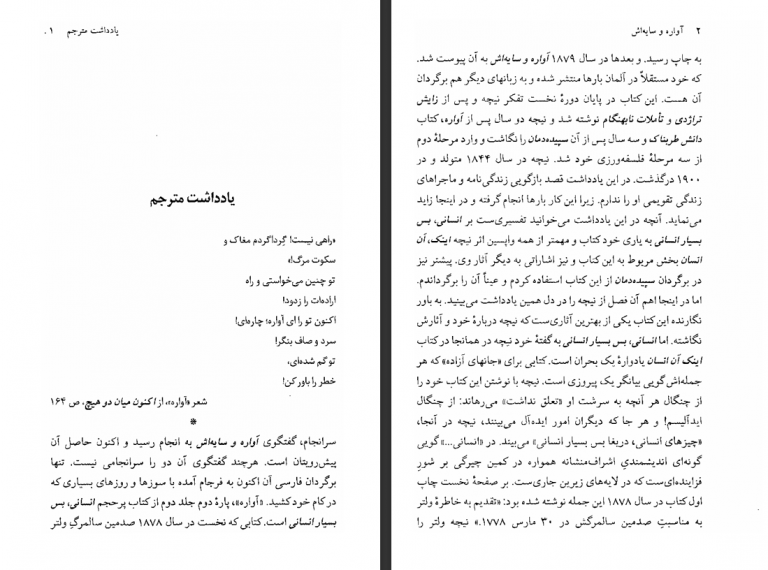 یادداشت مترجم ۱
یادداشت مترجم
«راهی نیست! گرداگردم مغاک و
سکوت مرگ!»
تو چنین می‌خواستی و راه
اراده‌ات را زدود!
اکنون تو را ای آواره؛ چاره‌ای!
سرد و صاف بنگر!
تو گم شده‌ای،
خطر را باور کن!
شعر «آواره»، از اکنون میان دو هیچ، ص ۱۶۴
*
سرانجام، گفتگوی آواره و سایه‌اش به انجام رسید و اکنون حاصل آن
پیش‌رویتان است. هرچند گفتگوی آن دو را سرانجامی نیست. تنها
برگردان فارسی آن اکنون به فرجام آمده با سوزها و روزهای بسیاری که
در کام خود کشید. «آواره»، پارهٔ دوم جلد دوم از کتاب پرحجم انسانی، بس
بسیار انسانی است. کتابی که نخست در سال ۱۸۷۸ صدمین سالمرگ ولتر
۲ آواره و سایه‌اش
به چاپ رسید. و بعدها در سال ۱۸۷۹ آواره و سایه‌اش به آن پیوست شد.
که خود مستقلاً در آلمان بارها منتشر شده و به زبانهای دیگر هم برگردان
آن هست. این کتاب در پایان دورهٔ نخست تفکر نیچه و پس از زایش
تراژدی و تأملات نابهنگام نوشته شد و نیچه دو سال پس از آواره، کتاب
دانش طربناک و سه سال پس از آن سپیده‌دمان را نگاشت و وارد مرحلهٔ دوم
از سه مرحلهٔ فلسفه‌ورزی خود شد. نیچه در سال ۱۸۴۴ متولد و در
۱۹۰۰ درگذشت. در این یادداشت قصد بازگویی زندگی‌نامه و ماجراهای
زندگی تقویمی او را ندارم. زیرا این کار بارها انجام گرفته و در اینجا زاید
می‌نماید. آنچه در این یادداشت می‌خوانید تفسیری‌ست بر انسانی، بس
بسیار انسانی به یاری خود کتاب و مهمتر از همه واپسین اثر نیچه اینک، آن
انسان بخش مربوط به این کتاب و نیز اشاراتی به دیگر آثار وی. پیشتر نیز
در برگردان سپیده‌دمان از این کتاب استفاده کردم و عیناً آن را برگرداندم.
اما در اینجا اهم آن فصل از نیچه را در دل همین یادداشت می‌بینید. به باور
نگارنده این کتاب یکی از بهترین آثاری‌ست که نیچه دربارهٔ خود و آثارش
نگاشته. اما انسانی، بس بسیار انسانی به گفتهٔ خود نیچه در همانجا در کتاب
اینک آن انسان یادوارهٔ یک بحران است. کتابی برای «جانهای آزاده» که هر
جمله‌اش گویی بیانگر یک پیروزی است. نیچه با نوشتن این کتاب خود را
از چنگال هر آنچه به سرشت او «تعلق نداشت» می‌رهاند: از چنگال
ایدآلیسم! و هر جا که دیگران امور ایده‌آل می‌بینند، نیچه در آنجا،
«چیزهای انسانی، دریغا بس بسیار انسانی» می‌بیند. در «انسانی...» گویی
گونه‌ای اندیشمندیِ اشراف‌منشانه همواره در کمین چیرگی بر شور
فزاینده‌ای‌ست که در لایه‌های زیرین جاری‌ست. بر صفحهٔ نخست چاپ
اول کتاب در سال ۱۸۷۸ این جمله نوشته شده بود: «تقدیم به خاطرهٔ ولتر
به مناسبتِ صدمین سالمرگش در ۳۰ مارس ۱۷۷۸.» نیچه ولتر را